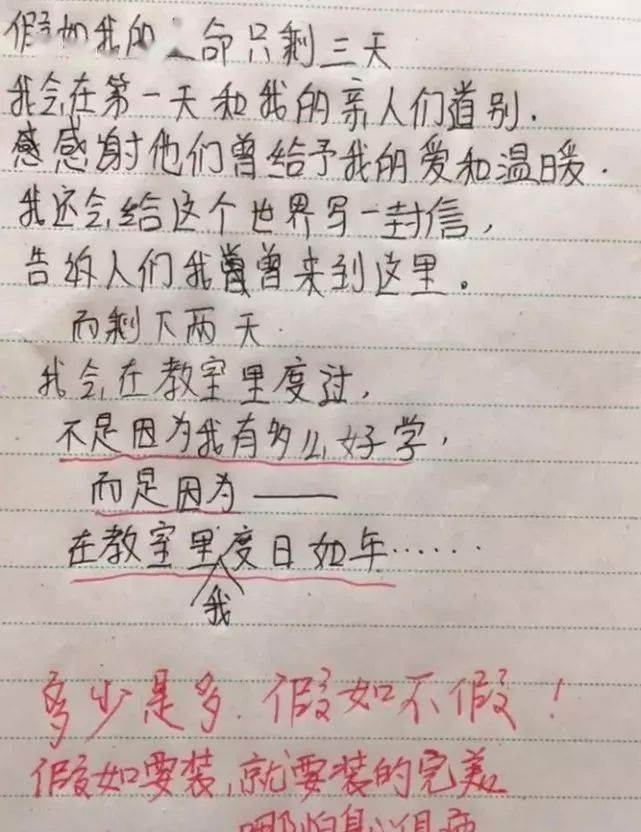 假如我的命只剩三天
我会在第一天和我的亲人们道别.
感感谢他们曾给予我的爱和温暖.
我还会给这个世界写一封信,
告诉人们我曾来到这里。
而剩下两天.
我会在教室里度过,
不是因为我有多么好学,
而是因为——
在教室里度日如年……
我
多少是多.假如不假!
假如要装,就要装的完美
哪怕是